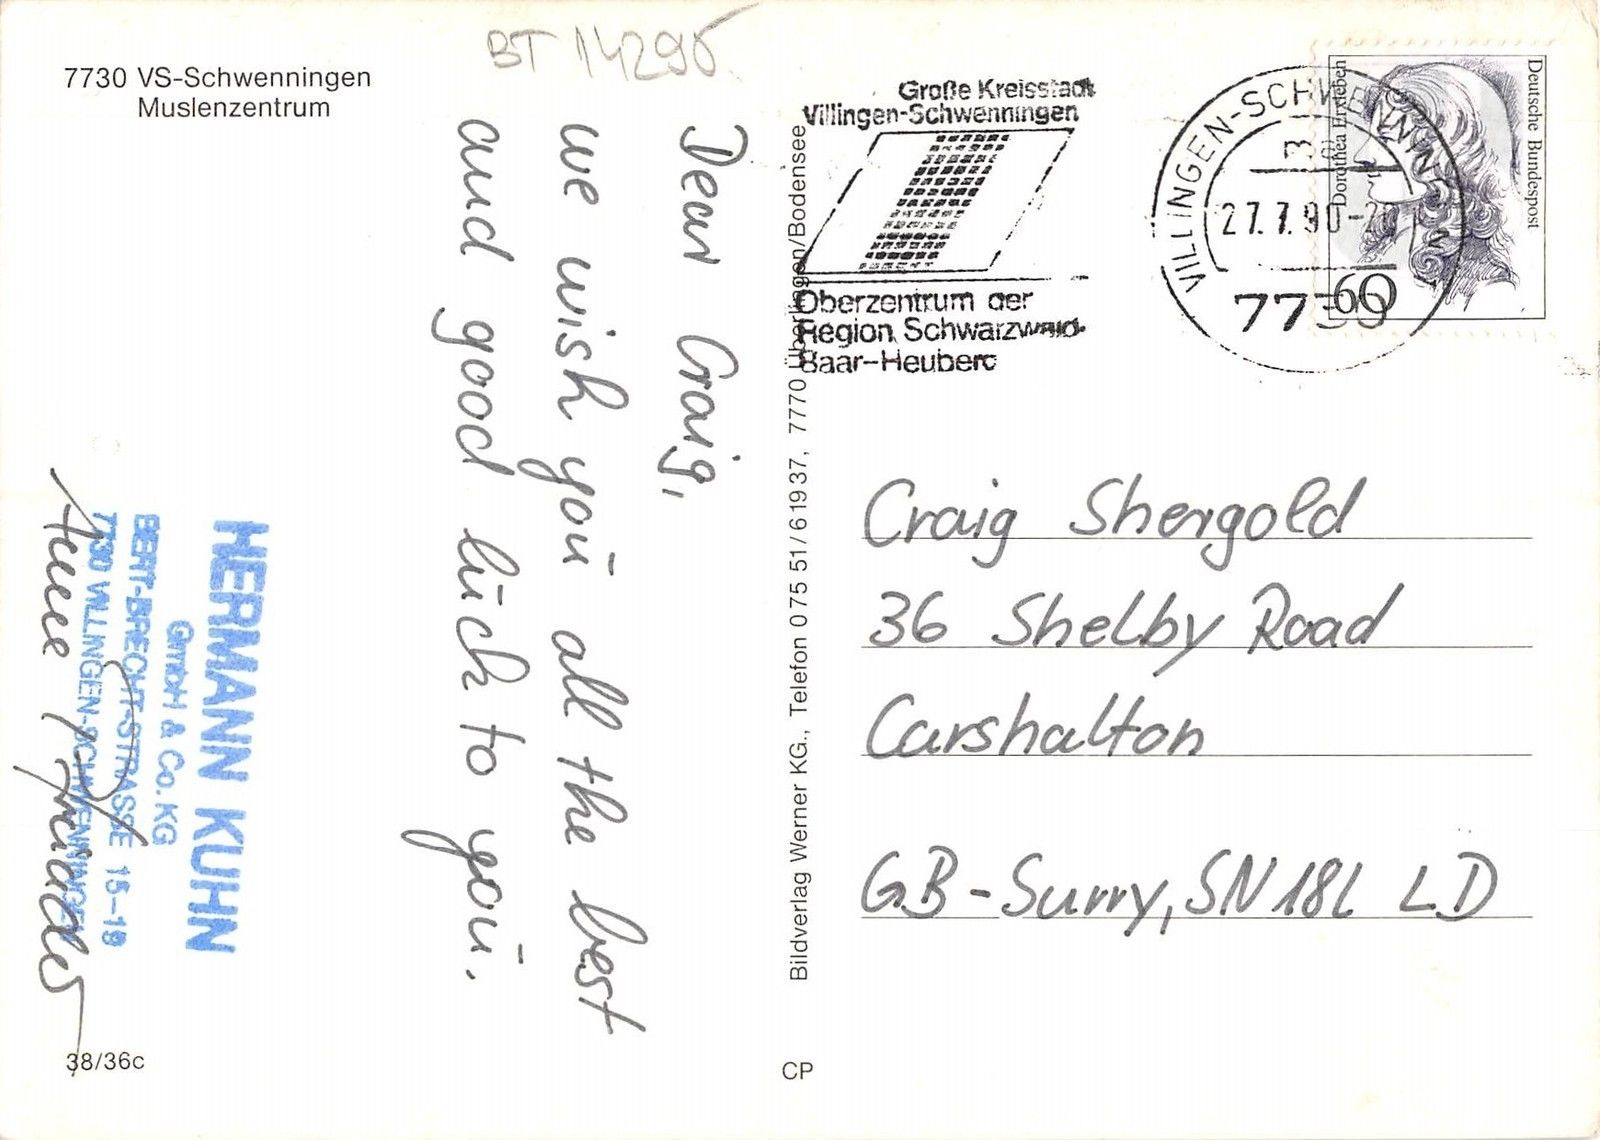 BT 14295
7730 VS-Schwenningen
Muslenzentrum
Dear Craig,
we wish you all the best
and good luck to you.
HERMANN KUHN
GmbH & Co. KG
BERT-BRECHT-STRASSE 15-19
7730 VILLINGEN-SCHWENNINGEN
38/36c
Bildverlag Werner KG., Telefon 075 51/61937, 7770 Überlingen/Bodensee
CP
Große Kreisstadt
Villingen-Schwenningen
Oberzentrum der
Region Schwarzwald-
Baar-Heuberg
VILLINGEN-SCHWENNINGEN
27.7.90-2
7730
Dorothea Erxleben
Deutsche Bundespost
60
Craig Shergold
36 Shelby Road
Carshalton
GB-Surry, SN 18L LD